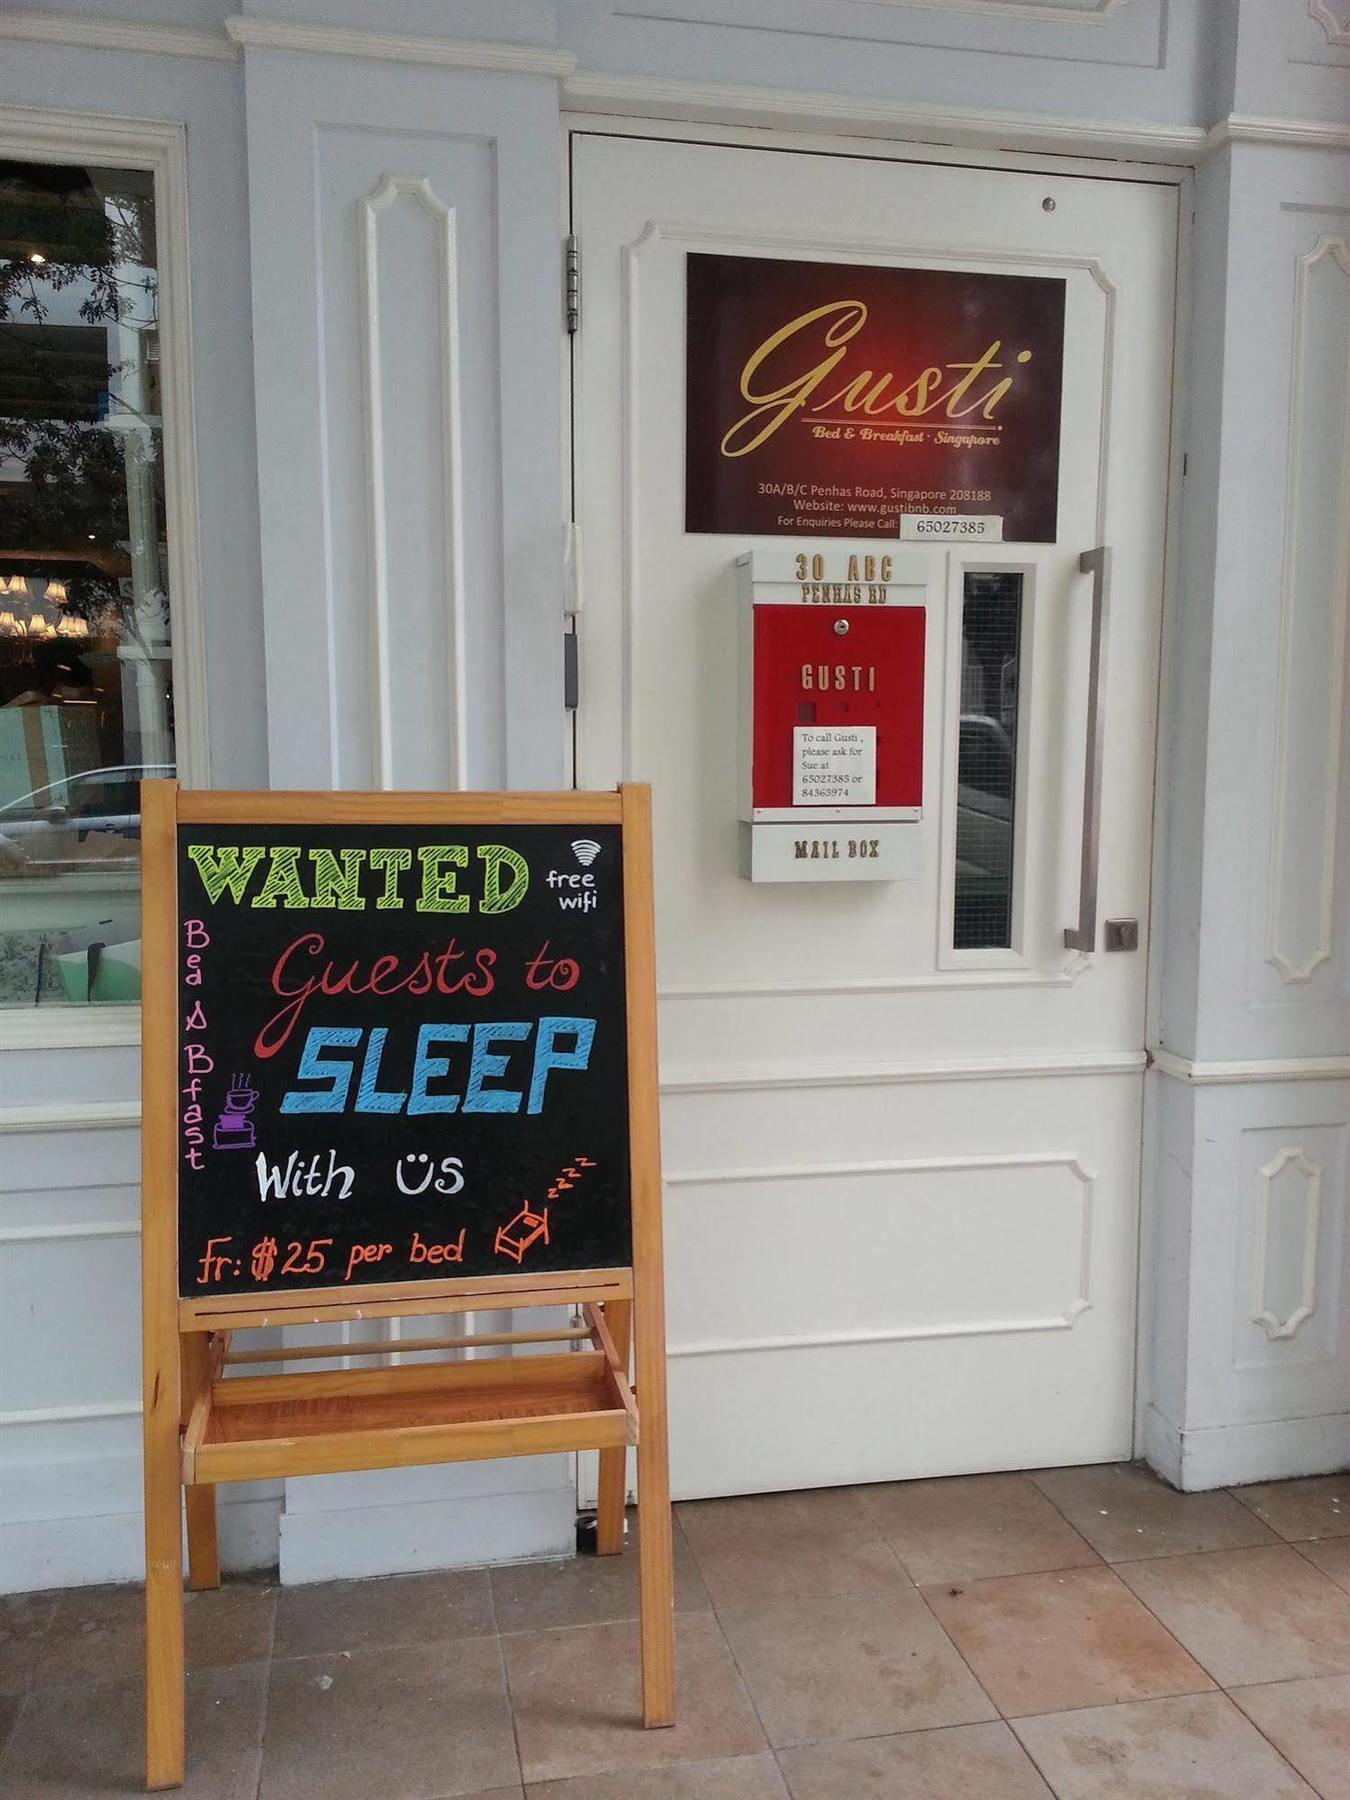 Gusti
Bed & Breakfast · Singapore
30A/B/C Penhas Road, Singapore 208188
Website: www.gustibnb.com
For Enquiries Please Call: 65027385
30 ABC
PENHAS RD
GUSTI
To call Gusti ,
please ask for
Sue at
65027385 or
84365974
MAIL BOX
WANTED
free
wifi
Guests to
SLEEP
With Üs
fr: $25 per bed
zzzz
Bed & Bfast